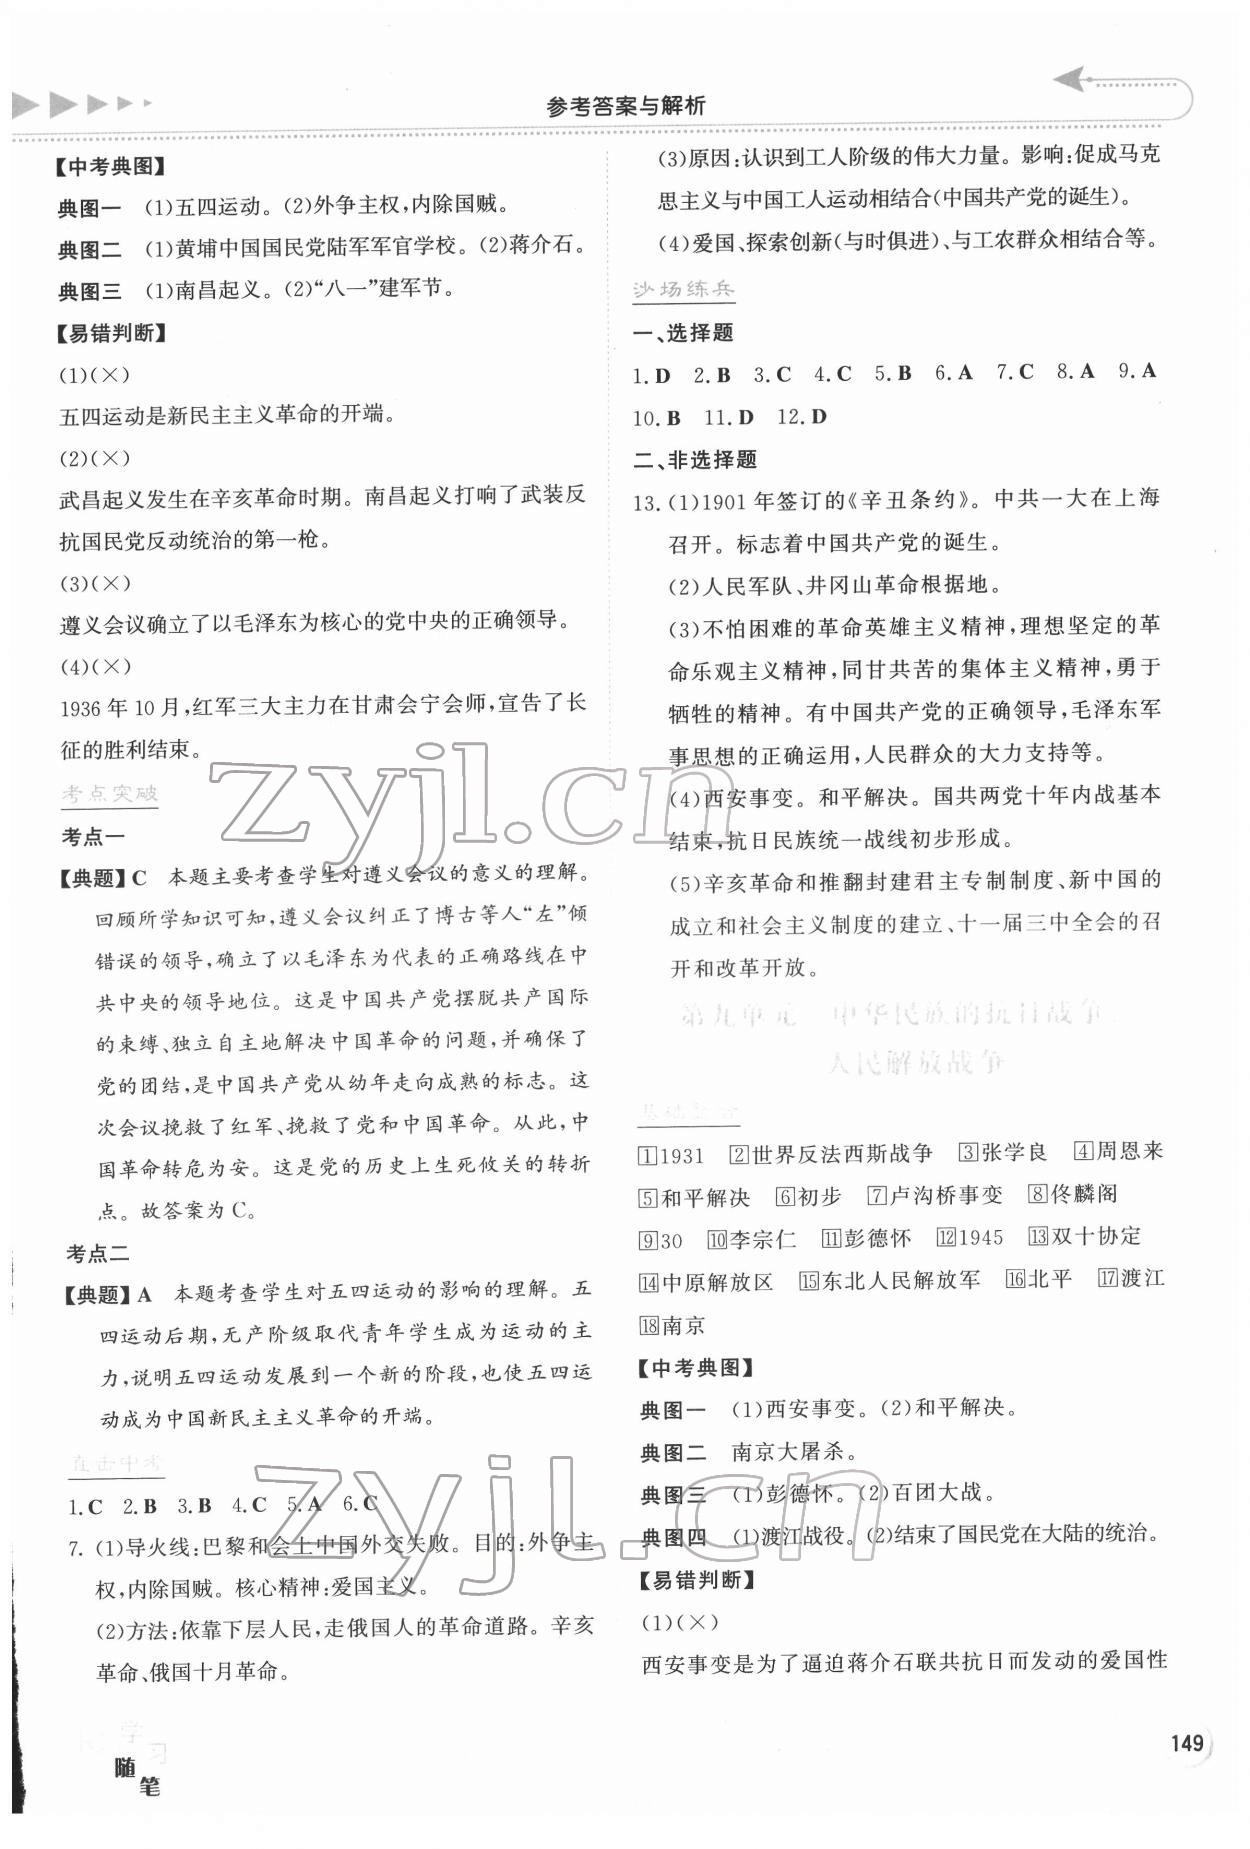 参考答案与解析
【中考典图】
典图一 (1)五四运动。(2)外争主权,内除国贼。
典图二 (1)黄埔中国国民党陆军军官学校。(2)蒋介石。
典图三 (1)南昌起义。(2)“八一”建军节。
【易错判断】
(1)(×)
五四运动是新民主主义革命的开端。
(2)(×)
武昌起义发生在辛亥革命时期。南昌起义打响了武装反
抗国民党反动统治的第一枪。
(3)(×)
遵义会议确立了以毛泽东为核心的党中央的正确领导。
(4)(×)
1936年10月,红军三大主力在甘肃会宁会师,宣告了长
征的胜利结束。
考点突破
考点一
【典题】C 本题主要考查学生对遵义会议的意义的理解。
回顾所学知识可知,遵义会议纠正了博古等人“左”倾
错误的领导,确立了以毛泽东为代表的正确路线在中
共中央的领导地位。这是中国共产党摆脱共产国际
的束缚、独立自主地解决中国革命的问题,并确保了
党的团结,是中国共产党从幼年走向成熟的标志。这
次会议挽救了红军、挽救了党和中国革命。从此,中
国革命转危为安。这是党的历史上生死攸关的转折
点。故答案为C。
考点二
【典题】A 本题考查学生对五四运动的影响的理解。五
四运动后期,无产阶级取代青年学生成为运动的主
力,说明五四运动发展到一个新的阶段,也使五四运
动成为中国新民主主义革命的开端。
直击中考
1.C 2.B 3.B 4.C 5.A 6.C
7.(1)导火线:巴黎和会上中国外交失败。目的:外争主
权,内除国贼。核心精神:爱国主义。
(2)方法:依靠下层人民,走俄国人的革命道路。辛亥
革命、俄国十月革命。
(3)原因:认识到工人阶级的伟大力量。影响:促成马克
思主义与中国工人运动相结合(中国共产党的诞生)。
(4)爱国、探索创新(与时俱进)、与工农群众相结合等。
沙场练兵
一、选择题
1.D 2.B 3.C 4.C 5.B 6.A 7.C 8.A 9.A
10.B 11.D 12.D
二、非选择题
13.(1)1901年签订的《辛丑条约》。中共一大在上海
召开。标志着中国共产党的诞生。
(2)人民军队、井冈山革命根据地。
(3)不怕困难的革命英雄主义精神,理想坚定的革
命乐观主义精神,同甘共苦的集体主义精神,勇于
牺牲的精神。有中国共产党的正确领导,毛泽东军
事思想的正确运用,人民群众的大力支持等。
(4)西安事变。和平解决。国共两党十年内战基本
结束,抗日民族统一战线初步形成。
(5)辛亥革命和推翻封建君主专制制度、新中国的
成立和社会主义制度的建立、十一届三中全会的召
开和改革开放。
第九单元 中华民族的抗日战争
人民解放战争
基础整合
1 1931 2世界反法西斯战争 3张学良 4周恩来
5和平解决 6初步 7卢沟桥事变 8佟麟阁
9 30 10李宗仁 11彭德怀 12 1945 13双十协定
14中原解放区 15东北人民解放军 16北平 17渡江
18南京
【中考典图】
典图一 (1)西安事变。(2)和平解决。
典图二 南京大屠杀。
典图三 (1)彭德怀。(2)百团大战。
典图四 (1)渡江战役。(2)结束了国民党在大陆的统治。
【易错判断】
(1)(×)
西安事变是为了逼迫蒋介石联共抗日而发动的爱国性
zyjl.cn
zyjl.cn
学习
随笔
149